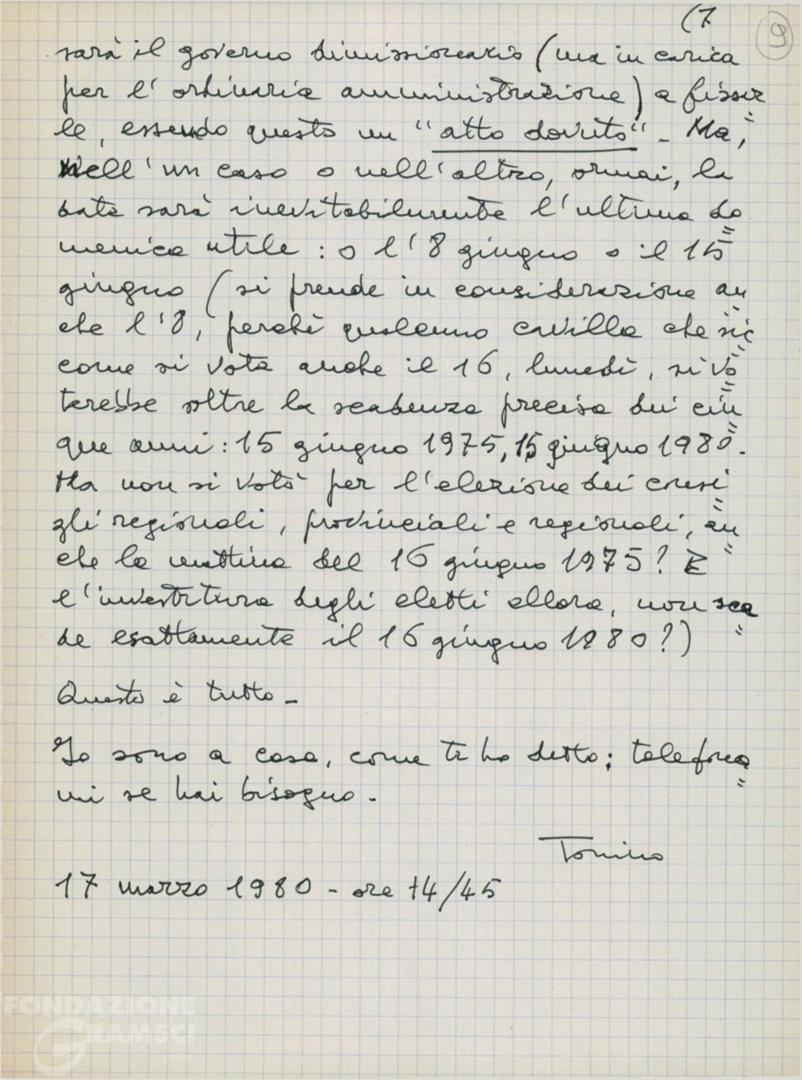 (7
9
sarà il governo dimissionario (ma in carica
per l'ordinaria amministrazione) a fissar=
le, essendo questo un "atto dovuto". Ma,
nell'un caso o nell'altro, ormai, la
data sarà inevitabilmente l'ultima do=
menica utile: o l'8 giugno o il 15
giugno (si prende in considerazione an=
che l'8, perché qualcuno cavilla che sic=
come si vota anche il 16, lunedì, si vo=
terebbe oltre la scadenza precisa dei cin=
que anni: 15 giugno 1975, 15 giugno 1980.
Ma non si votò per l'elezione dei consi=
gli regionali, provinciali e regionali, an=
che la mattina del 16 giugno 1975? E
l'investitura degli eletti allora, non sca=
de esattamente il 16 giugno 1980?)
Questo è tutto -
Io sono a casa, come ti ho detto; telefona=
mi se hai bisogno.
Tonino
17 marzo 1980 - ore 14/45
FONDAZIONE
GRAMSCI